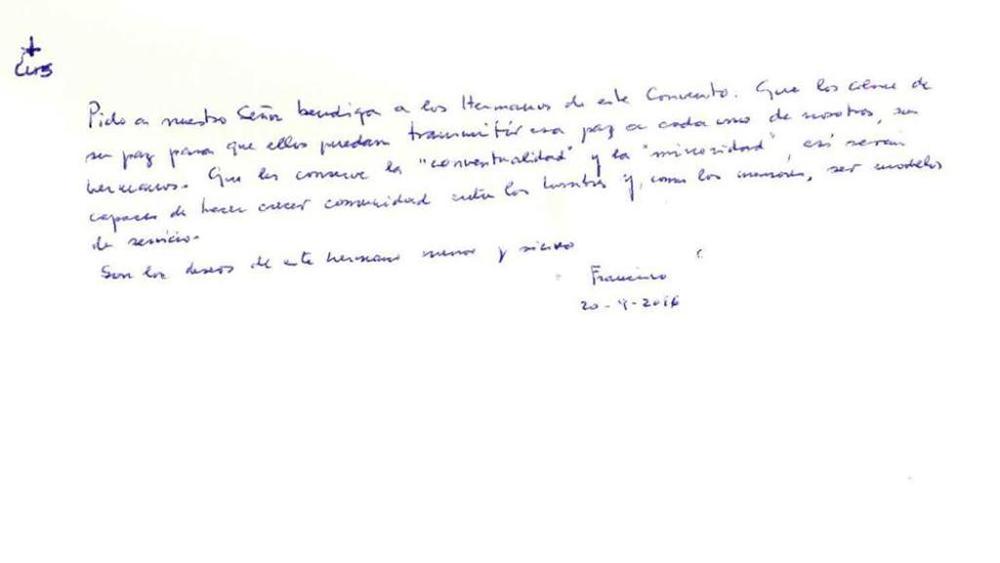 +
Pido a nuestro Señor bendiga a los Hermanos de este Convento. Que los llene de
su paz para que ellos puedan transmitir esa paz a cada uno de nosotros, sus
hermanos. Que les conserve la "conventualidad" y la "minoridad", así serán
capaces de hacer crecer comunidad entre los hombres y, como los menores, ser modelos
de servicio.
Son los deseos de este hermano menor y siervo
Francisco
2016